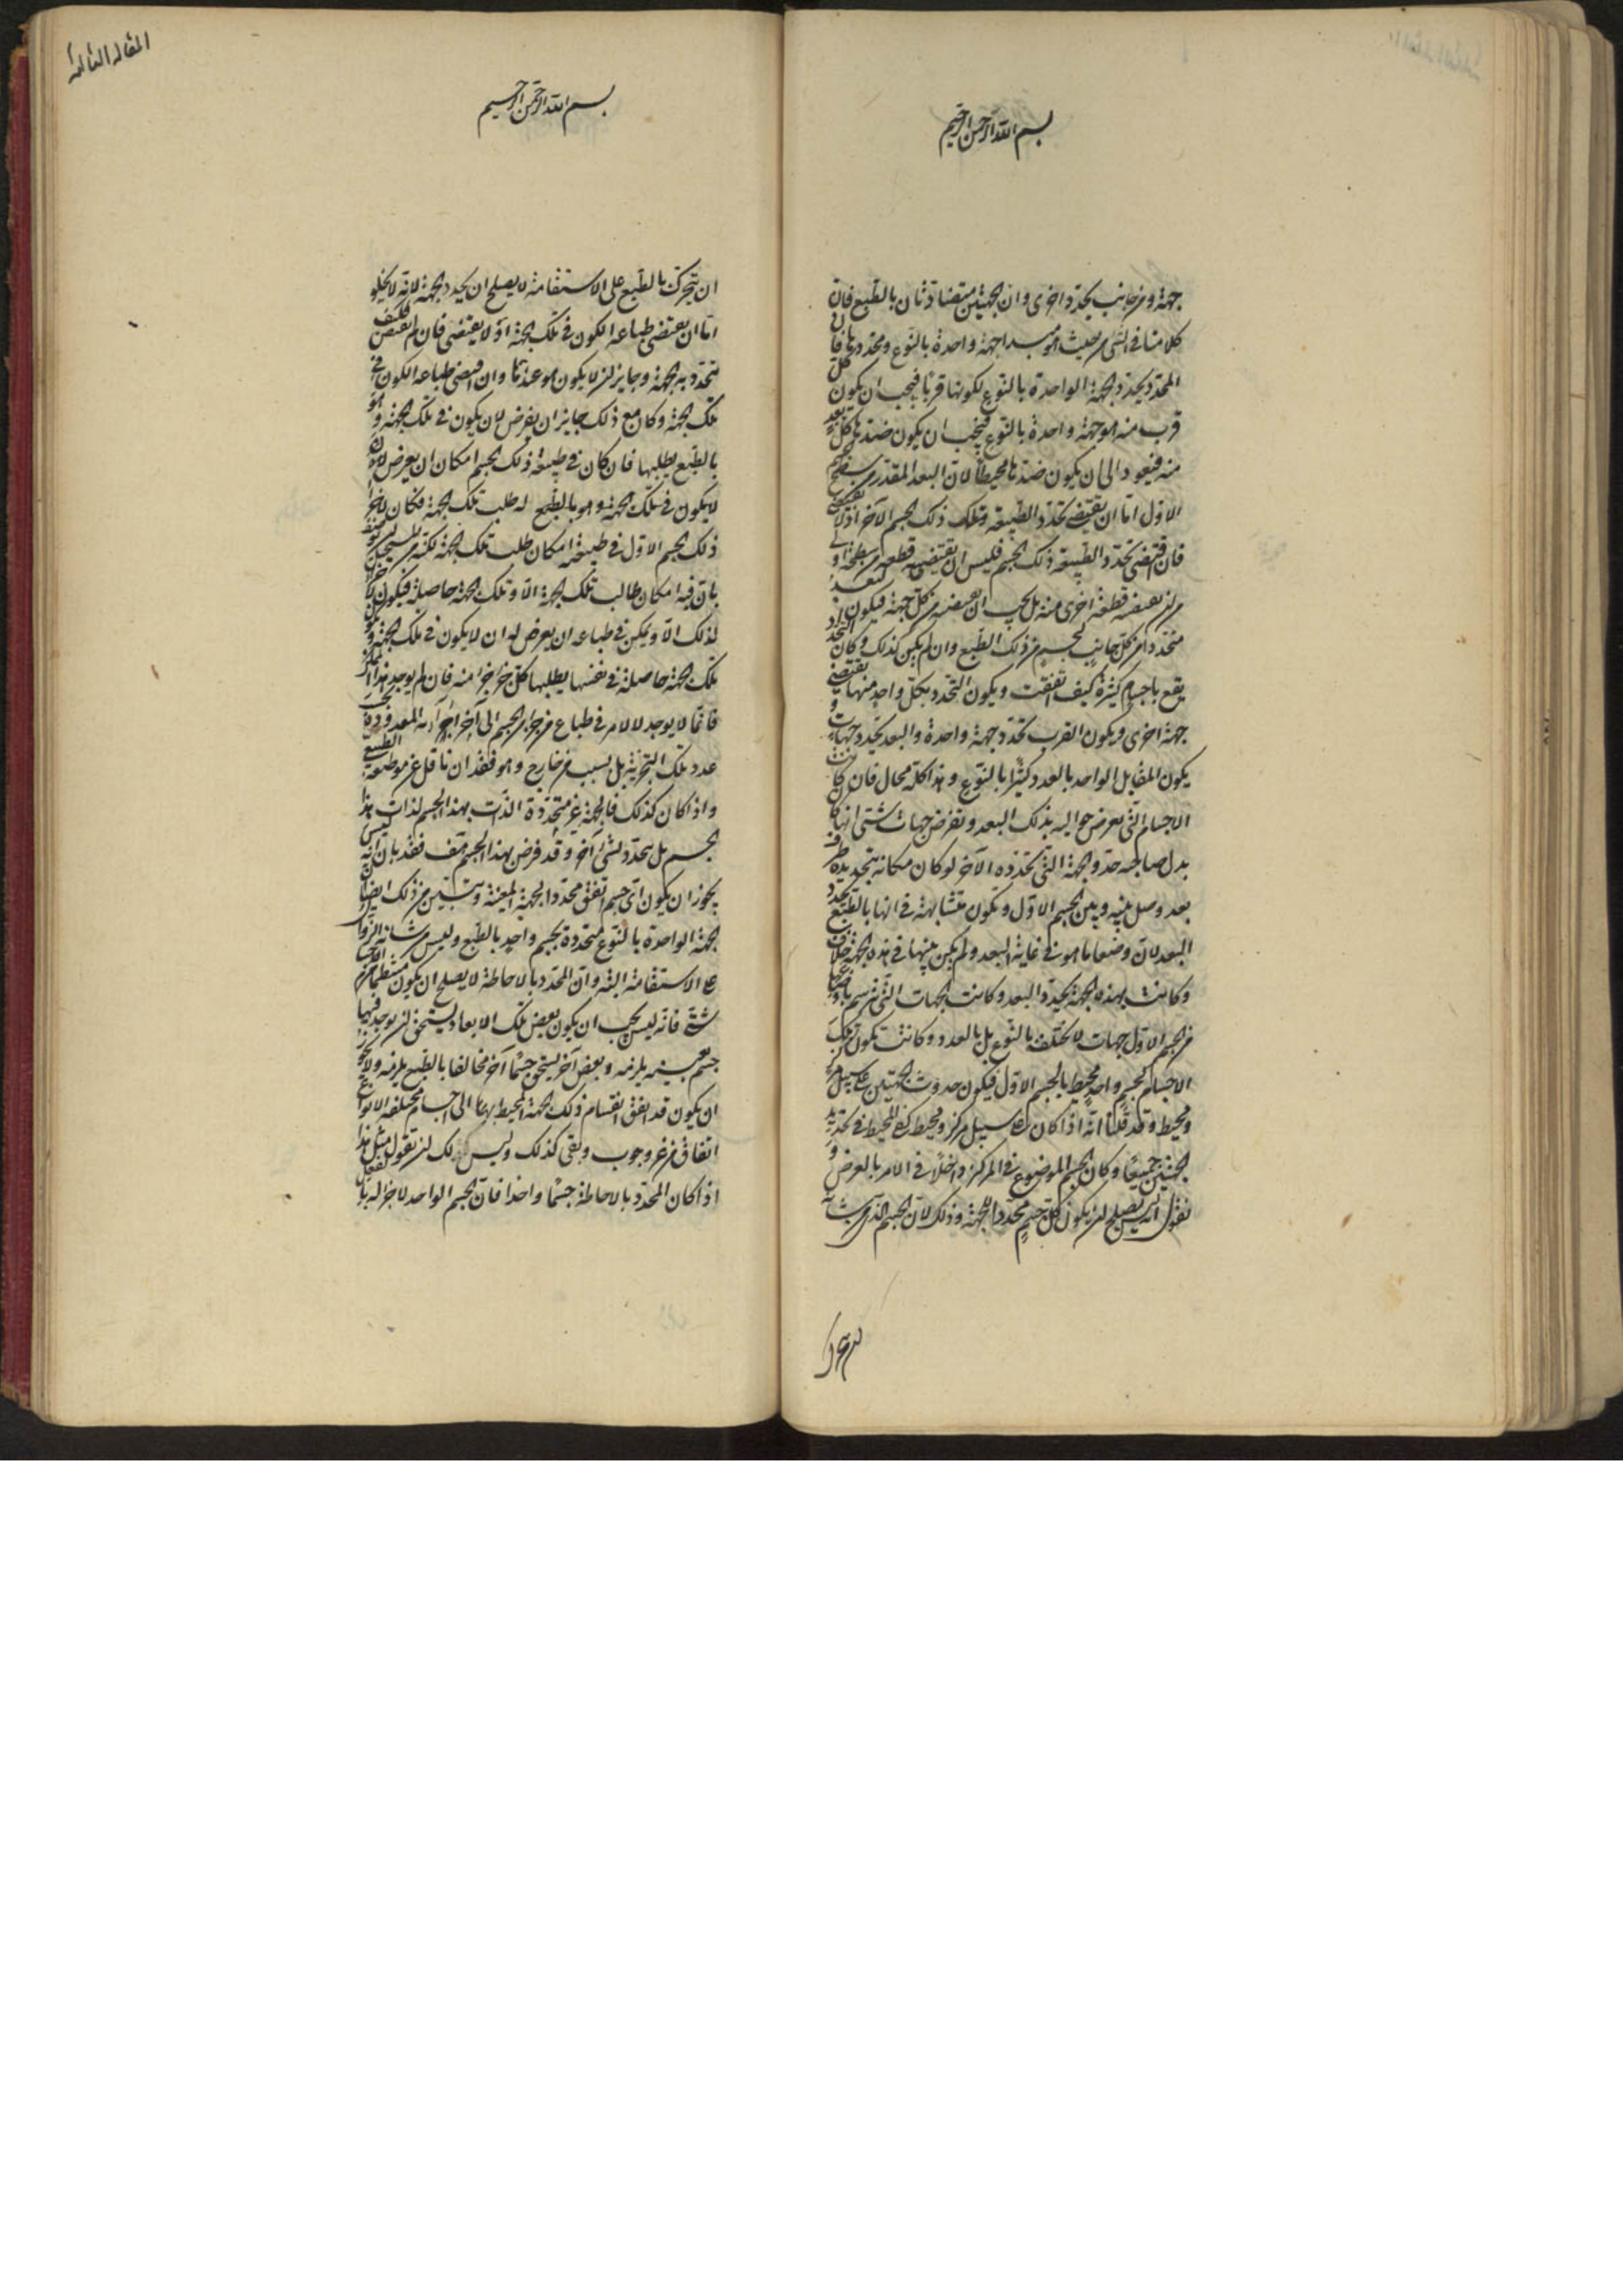 بسم الله الرحمن الرحيم
جهة ومن جانب يحدد اخرى وان الجهتين متضادتان بالطبع فان
كلامنا فى الشى من حيث هو مبدا جهة واحدة بالنوع ومحددها فان
المحدد يحدد الجهة الواحدة بالنوع لكونها قربا فيجب ان يكون كل
قرب منه هو جهة واحدة بالنوع فيجب ان يكون ضدها كل بعد
منه فيعود الى ان يكون ضدها محيطا لان البعد المقدر من سطح
الاول اما ان يقتضى تحدد الطبيعة وتلك ذلك الجسم الآخر او لا يقتضى
فان اقتضى تحدد الطبيعة ذلك الجسم فليس ان يقتضيه قطعة من سطحه اولى
من ان يقتضيه قطعة اخرى منه بل يجب ان يقتضيه من كل جهة فيكون البعد
متحددا من كل جانب لجسم من ذلك الطبع وان لم يكن كذلك وكان التحدد
يقع باجسام كثيرة كيف اتفقت ويكون التحدد بكل واحد منها يقتضى
جهة اخرى ويكون القرب تحدد جهة واحدة والبعد يحدد جهات و
يكون المقابل الواحد بالعدد كثيرا بالنوع وهذا كله محال فان كانت
الاجسام التى تعرض حواليه بذلك البعد وتفرض جهات شتى انها كان
بدل صاحبه حدد الجهة التى تحدده الآخر لو كان مكانه بتحديده طرف
بعد وصل بينه وبين الجسم الاول وتكون متشابهة فى انها بالطبع تحدد
البعد لان وضعها ما هو فى غاية البعد ولم يكن بينها فى هذه الجهة خلاف
وكانت بهذه الجهة تحدد البعد وكانت الجهات التى ترسم باوضاعها
من الجسم الاول جهات لا تختلف بالنوع بل بالعدد وكانت تكون تلك
الاجسام كجسم واحد محيط بالجسم الاول فيكون حدوث الجهتين على سبيل مركز
ومحيط وقد قلنا انه اذا كان على سبيل مركز ومحيط كفى المحيط فى تحديد
الجهتين جميعا وكان الجسم الموضوع فى المركز داخلا فى الامر بالعرض و
نقول انه ليس يصلح ان يكون كل جسم محددا للجهة وذلك لان الجسم الذى من شانه
بسم الله الرحمن الرحيم
المقالة الثالثة
ان يتحرك بالطبع على الاستقامة لا يصلح ان يحدد الجهة لانه لا يخلو
اما ان يقتضى طباعه الكون فى تلك الجهة او لا يقتضى فان لم يقتض فكيف
تتحدد به الجهة وجايز ان لا يكون هو عندها وان اقتضى طباعه الكون فى
تلك الجهة وكان مع ذلك جايز ان يفرض لان يكون فى تلك الجهة وهو
بالطبع يطلبها فان كان فى طبيعة ذلك الجسم امكان ان يعرض له ان
لا يكون فى تلك الجهة وهو بالطبع له طلب تلك الجهة فكان لاجزا
ذلك الجسم الاول فى طبيعته امكان طلب تلك الجهة لكنه من المستحيل
بان فيه امكان طالب تلك الجهة الا وتلك الجهة حاصلة فيكون
لذلك الا ويمكن فى طباعه ان يعرض له ان لا يكون فى تلك الجهة و
تلك الجهة حاصلة فى نفسها يطلبها كل جزء جزء منه فان لم يوجد هذا
فانما لا يوجد لا لامر فى طباع
عدد تلك التجزية بل بسبب من خارج وهو فقدان ناقل عن موضعه الطبيعى
واذا كان كذلك فالجهة غير متحددة الذات بهذا الجسم لذات هذا
الجسم بل يتحدد لشى آخر وقد فرض بهذا الجسم هف فقد بان انه ليس
يجوز ان يكون اى جسم اتفق محددا لجهة المعينة وتبين من ذلك ايضا ان
الجهة الواحدة بالنوع متحددة بجسم واحد بالطبع وليس من شانه الزوال
على الاستقامة البتة وان المحدد بالاحاطة لا يصلح ان يكون منتظما من اجسام
شتى فانه ليس يجب ان يكون بعض تلك الابعاد يستحق ان يوجد فيها
جسم بعينه يلزمه وبعض آخر يستحق جسما آخر مخالفا بالطبع يلزمه ولا يجوز
ان يكون قد اتفق انقسام ذلك الجهة المحيط بها الى اجسام مختلفة الانواع
اتفاق من غير وجوب وبقى كذلك وليس لك ان تقول مثل هذا
اذا كان المحدد بالاحاطة جسما واحدا فان الجسم الواحد لا جزء له بالفعل